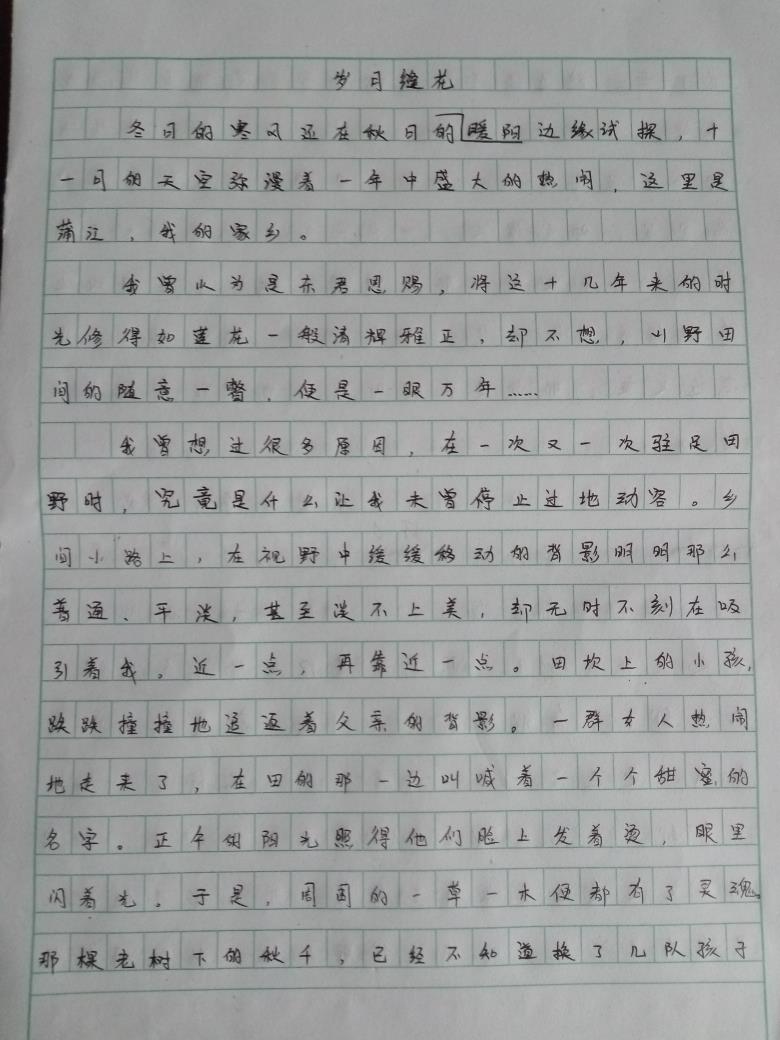 岁月缝花
冬日的寒风还在秋日的暖阳边缘试探，十
一月的天空弥漫着一年中盛大的热闹，这里是
蒲江，我的家乡。
我曾以为是东君恩赐，将这十几年来的时
光修得如莲花一般清辉雅正，却不想，山野田
间的随意一瞥，便是一眼万年……
我曾想过很多原因，在一次又一次驻足田
野时，究竟是什么让我未曾停止过地动容。乡
间小路上，在视野中缓缓移动的背影明明那么
普通、平淡，甚至谈不上美，却无时不刻在吸
引着我。近一点，再靠近一点。田坎上的小孩，
跌跌撞撞地追逐着父亲的背影。一群女人热闹
地走来了，在田的那一边叫喊着一个个甜蜜的
名字。正午的阳光照得他们脸上发着烫，眼里
闪着光。于是，周围的一草一木便都有了灵魂。
那棵老树下的秋千，已经不知道换了几队孩子